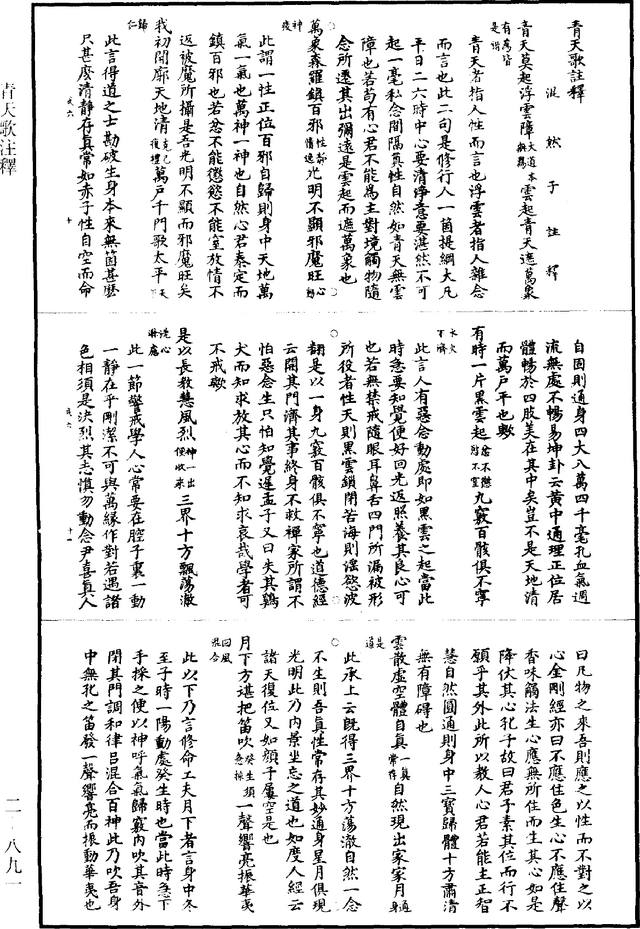 青天歌註釋
混然子註釋
青天莫起浮雲障大道本無為雲起青天遮萬象
有為皆是惜
青天者指人性而言也浮雲者指人雜念
而言也此二句是修行人一箇提綱大凡
平日二六時中心要清淨意要湛然不可
起一毫私念間隔真性自然如青天無雲
障也若苟有心君不能為主對境觸物隨
念所遷其出彌遠是雲起而遮萬象也
萬象森羅鎮百邪性靜情逸光明不顯邪魔旺心動
神疲
此謂一性正位百邪自歸則身中天地萬
氣一氣也萬神一神也自然心君泰定而
鎮百邪也若忿不能懲慾不能窒放情不
返被魔所攝是吾光明不顯而邪魔旺矣
我初開廓天地清克己復禮萬戶千門歌太平天下
歸仁
此言得道之士勘破生身本來無箇甚麼
只甚麼清靜存真常如赤子性自空而命
自固則通身四大八萬四千毫孔血氣週
流無處不暢易坤卦云黃中通理正位居
體暢於四肢美在其中矣豈不是天地清
而萬戶平也歟
有時一片黑雲起忿不懲慾不窒九竅百骸俱不寧
水火不濟
此言人有惡念動處即如黑雲之起當此
時急要知覺便好回光返照養其良心可
也若無禁戒隨眼耳鼻舌四門所漏被形
所役者性天則黑雲鎖閉苦海則淫慾波
翻是以一身九竅百骸俱不寧也道德經
云開其門濟其事終身不救禪家所謂不
怕惡念生只怕知覺遲孟子又曰失其雞
犬而知求放其心而不知求哀哉學者可
不戒歟
是以長教慧風烈神一出便收來三界十方飄蕩澈
洗心滌慮
此一節警戒學人心常要在腔子裏一動
一靜在乎剛潔不可與萬緣作對若遇諸
色相須是決烈其志慎勿動念尹喜真人
曰凡物之來吾則應之以性而不對之以
心金剛經亦曰不應住色生心不應住聲
香味觸法生心應無所住而生其心如是
降伏其心孔子故曰君子素其位而行不
願乎其外此所以教人心君若能主正智
慧自然圓通則身中三寶歸體十方肅清
無有障碍也
雲散虛空體自真一真常存自然現出家家月遍身
是道
此承上云既得三界十方蕩澈自然一念
不生則吾真性常存其妙通身星月俱現
光明此乃內景坐忘之道也如度人經云
諸天復位又如顏子屢空是也
月下方堪把笛吹癸生須急採一聲響亮振華夷
回風混合
此以下乃言修命工夫月下者言身中冬
至子時一陽動處癸生時也當此時急下
手採之便以神呼氣氣歸竅內吹其音外
閉其門調和律呂混合百神此乃吹吾身
中無孔之笛發一聲響亮而振動華夷也
青天歌注釋
二·八九一